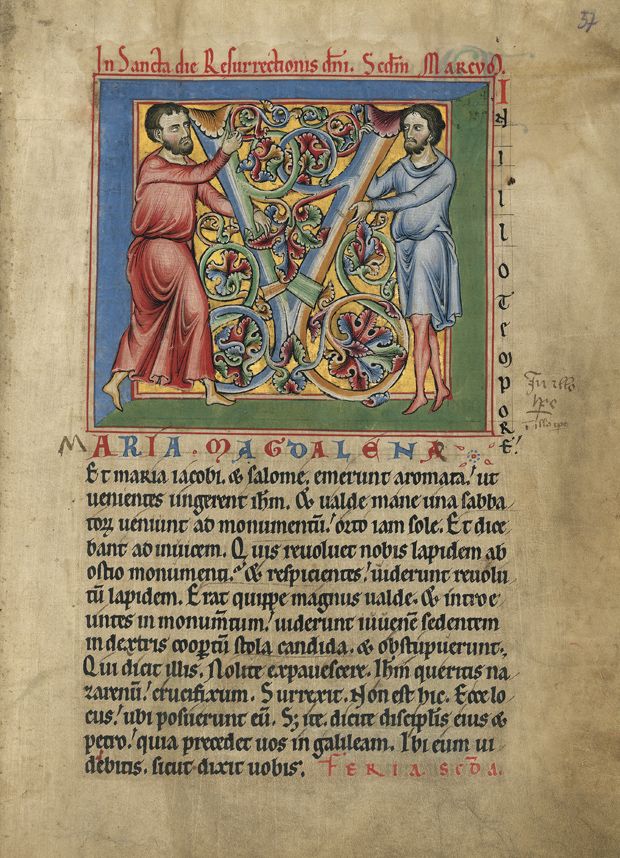 37
In Sancta die Resurrectionis dñi. Scđm Marcvm.
IN ILLO TEMPORE!
MARIA . MAGDALENA
Et maria iacobi. & salome, emerunt aromata! ut
uenientes ungerent ihm. & ualde mane una sabba
toꝝ ueniunt ad monumentū! orto iam sole. Et dice
bant ad inuicem. Quis reuoluet nobis lapidem ab
ostio monumenti. & respicientes! uiderunt reuolu
tū lapidem. Erat quippe magnus ualde. & introe
untes in monumtum! uiderunt iuuenē sedentem
in dextris coopertū stola candida. & obstupuerunt.
Qui dicit illis. Nolite expauescere. Ihm queritis na
zarenū! crucifixum. Surrexit. Non est hic. Ecce lo
cus! ubi posuerunt eū. Sꝫ ite. dicite discipłis eius &
petro! quia precedet uos in galileam. Ibi eum ui
debitis. sicut dixit uobis.
FERIA. SCDA.
In illo
tpe
illo tpe